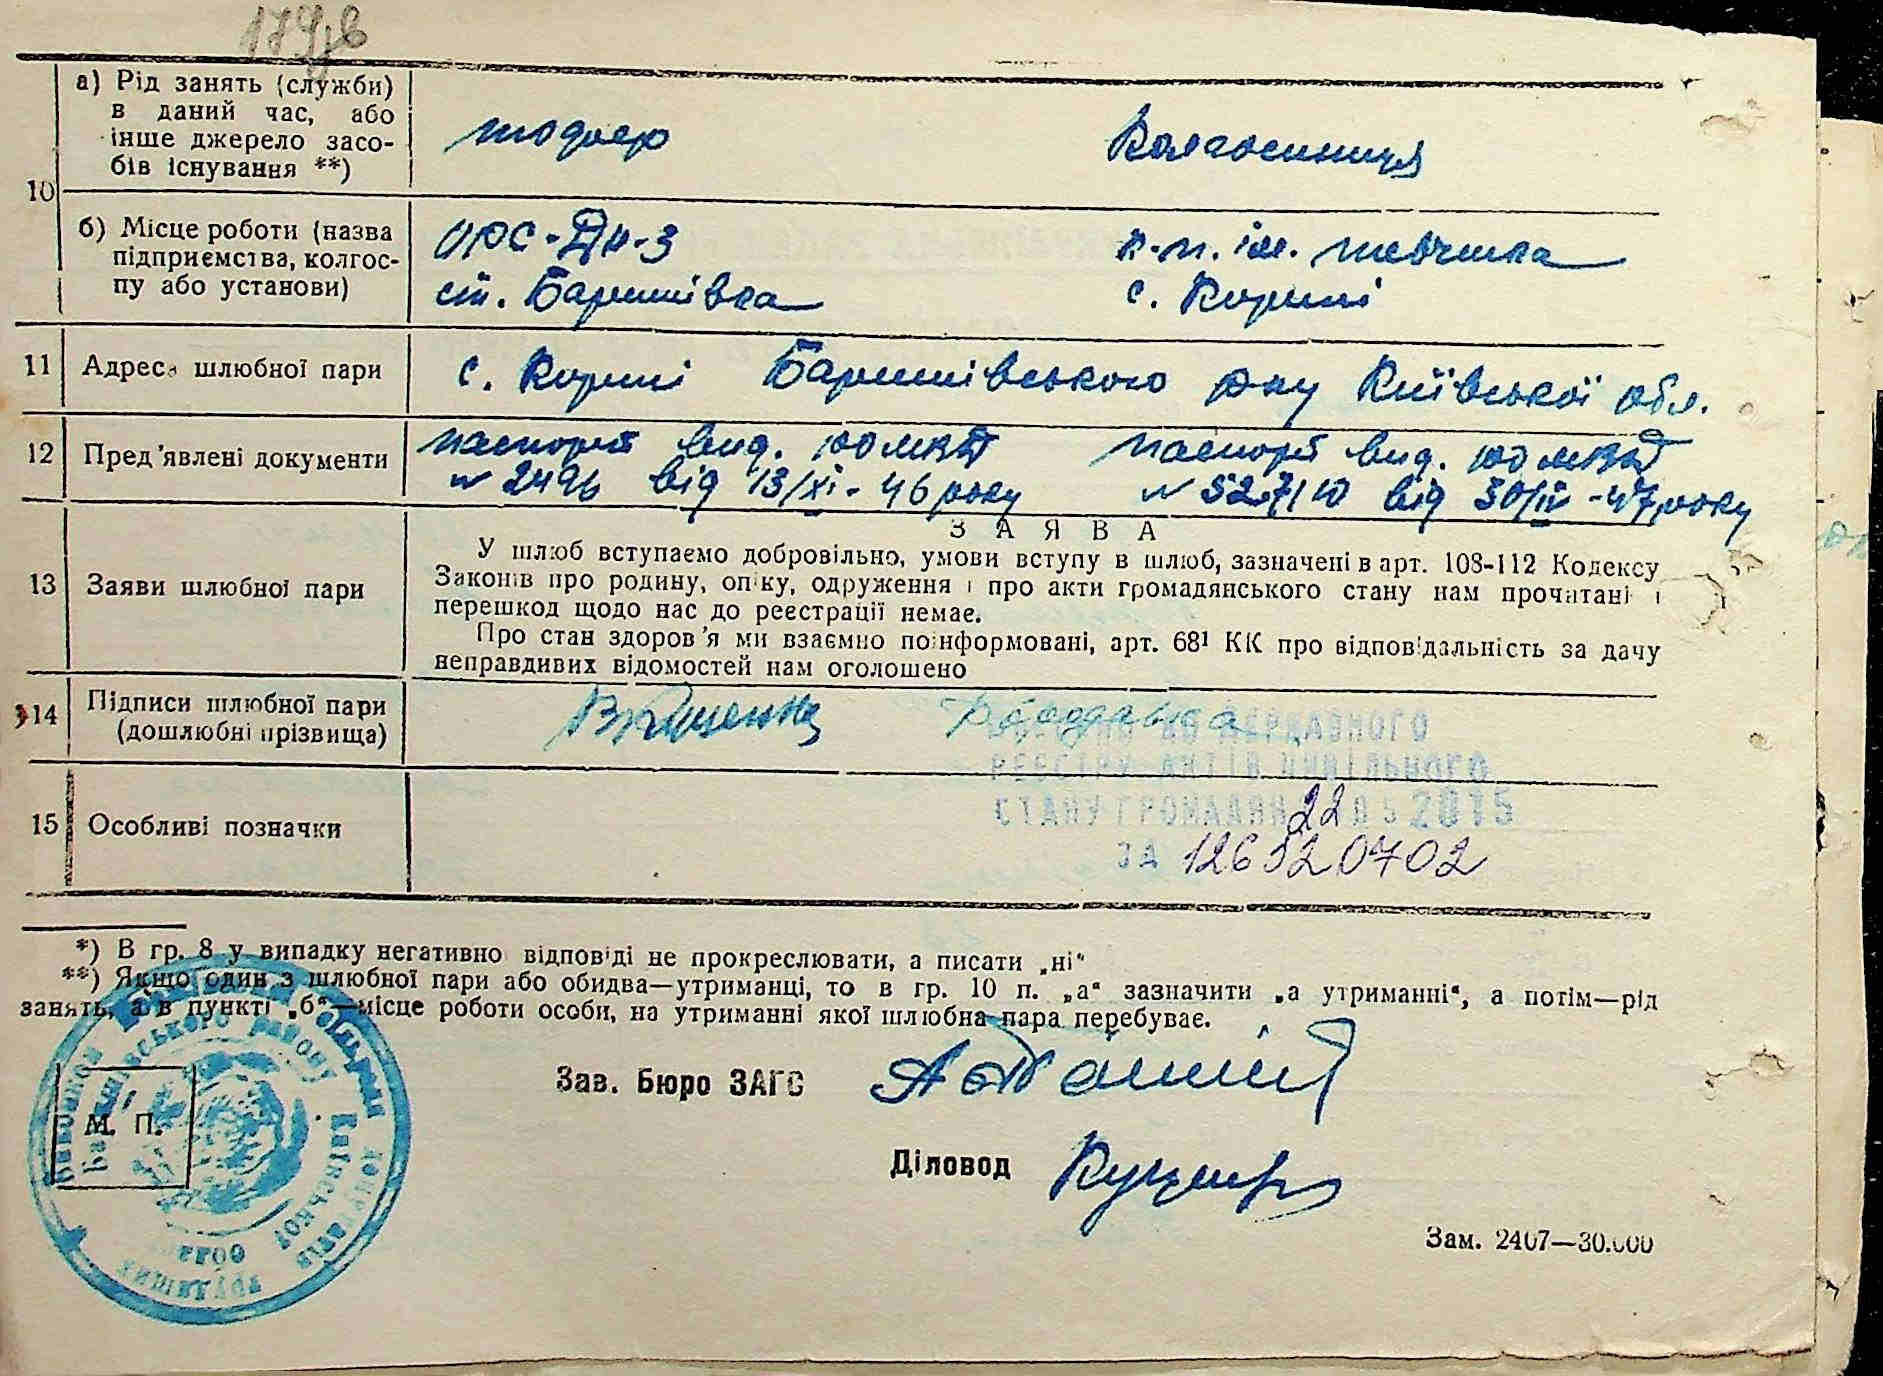 179зв
10
а) Рід занять (служби)
в даний час, або
інше джерело засо-
бів існування **)
шофер
Колгоспниця
б) Місце роботи (назва
підприємства, колгос-
пу або установи)
ОРС-ДН-3
ст. Баришівка
к-п. ім. Шевченка
с. Коржі
11 Адреса шлюбної пари
с. Коржі Баришівського р-ну Київської обл.
12 Пред'явлені документи
паспорт вид. РО МВД
№ 2496 від 13/XI-46 року
паспорт вид. РО МВД
від 30/IV-47 року
З А Я В А
13 Заяви шлюбної пари
У шлюб вступаємо добровільно, умови вступу в шлюб, зазначені в арт. 108-112 Кодексу
Законів про родину, опіку, одруження і про акти громадянського стану нам прочитані і
перешкод щодо нас до реєстрації немає.
Про стан здоров'я ми взаємно поінформовані, арт. 68¹ КК про відповідальність за дачу
неправдивих відомостей нам оголошено
14 Підписи шлюбної пари
(дошлюбні прізвища)
ДЕРЖАВНОГО
РЕЄСТРУ АКТІВ ЦИВІЛЬНОГО
СТАНУ ГРОМАДЯН 22 05 2015
ЗА 12652 0702
15 Особливі позначки
*) В гр. 8 у випадку негативно відповіді не прокреслювати, а писати „ні“
**) Якщо один з шлюбної пари або обидва—утриманці, то в гр. 10 п. „а“ зазначити „а утриманні“, а потім—рід
занять, а в пункті „б“—місце роботи особи, на утриманні якої шлюбна пара перебуває.
Зав. Бюро ЗАГС
М. П.
Діловод
Виконком
Баришівського району
Київської
депутатів
трудящих
Зам. 2407—30.000